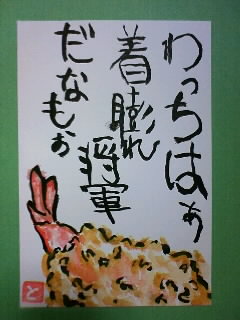 わっちはぁ
着膨れ
将軍
だなもぉ
と